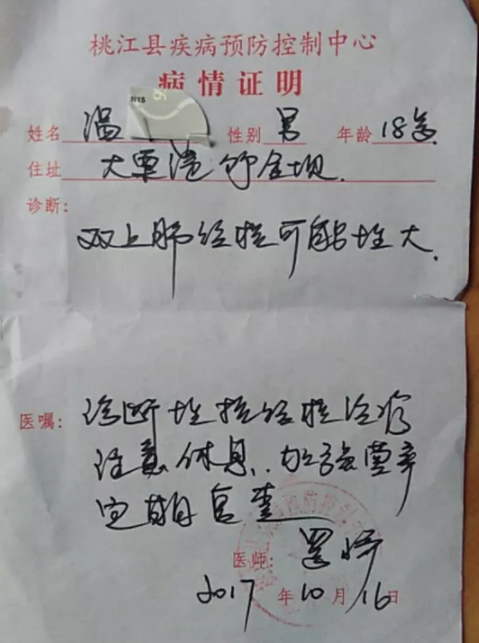 桃江县疾病预防控制中心
病情证明
姓名 温 性别 男 年龄 18岁
住址 大栗港 金坝
诊断:
双上肺结核可能性大.
医嘱: 诊断性抗结核治疗
注意休息.加强营养
定期复查
医师:
2017年10月16日